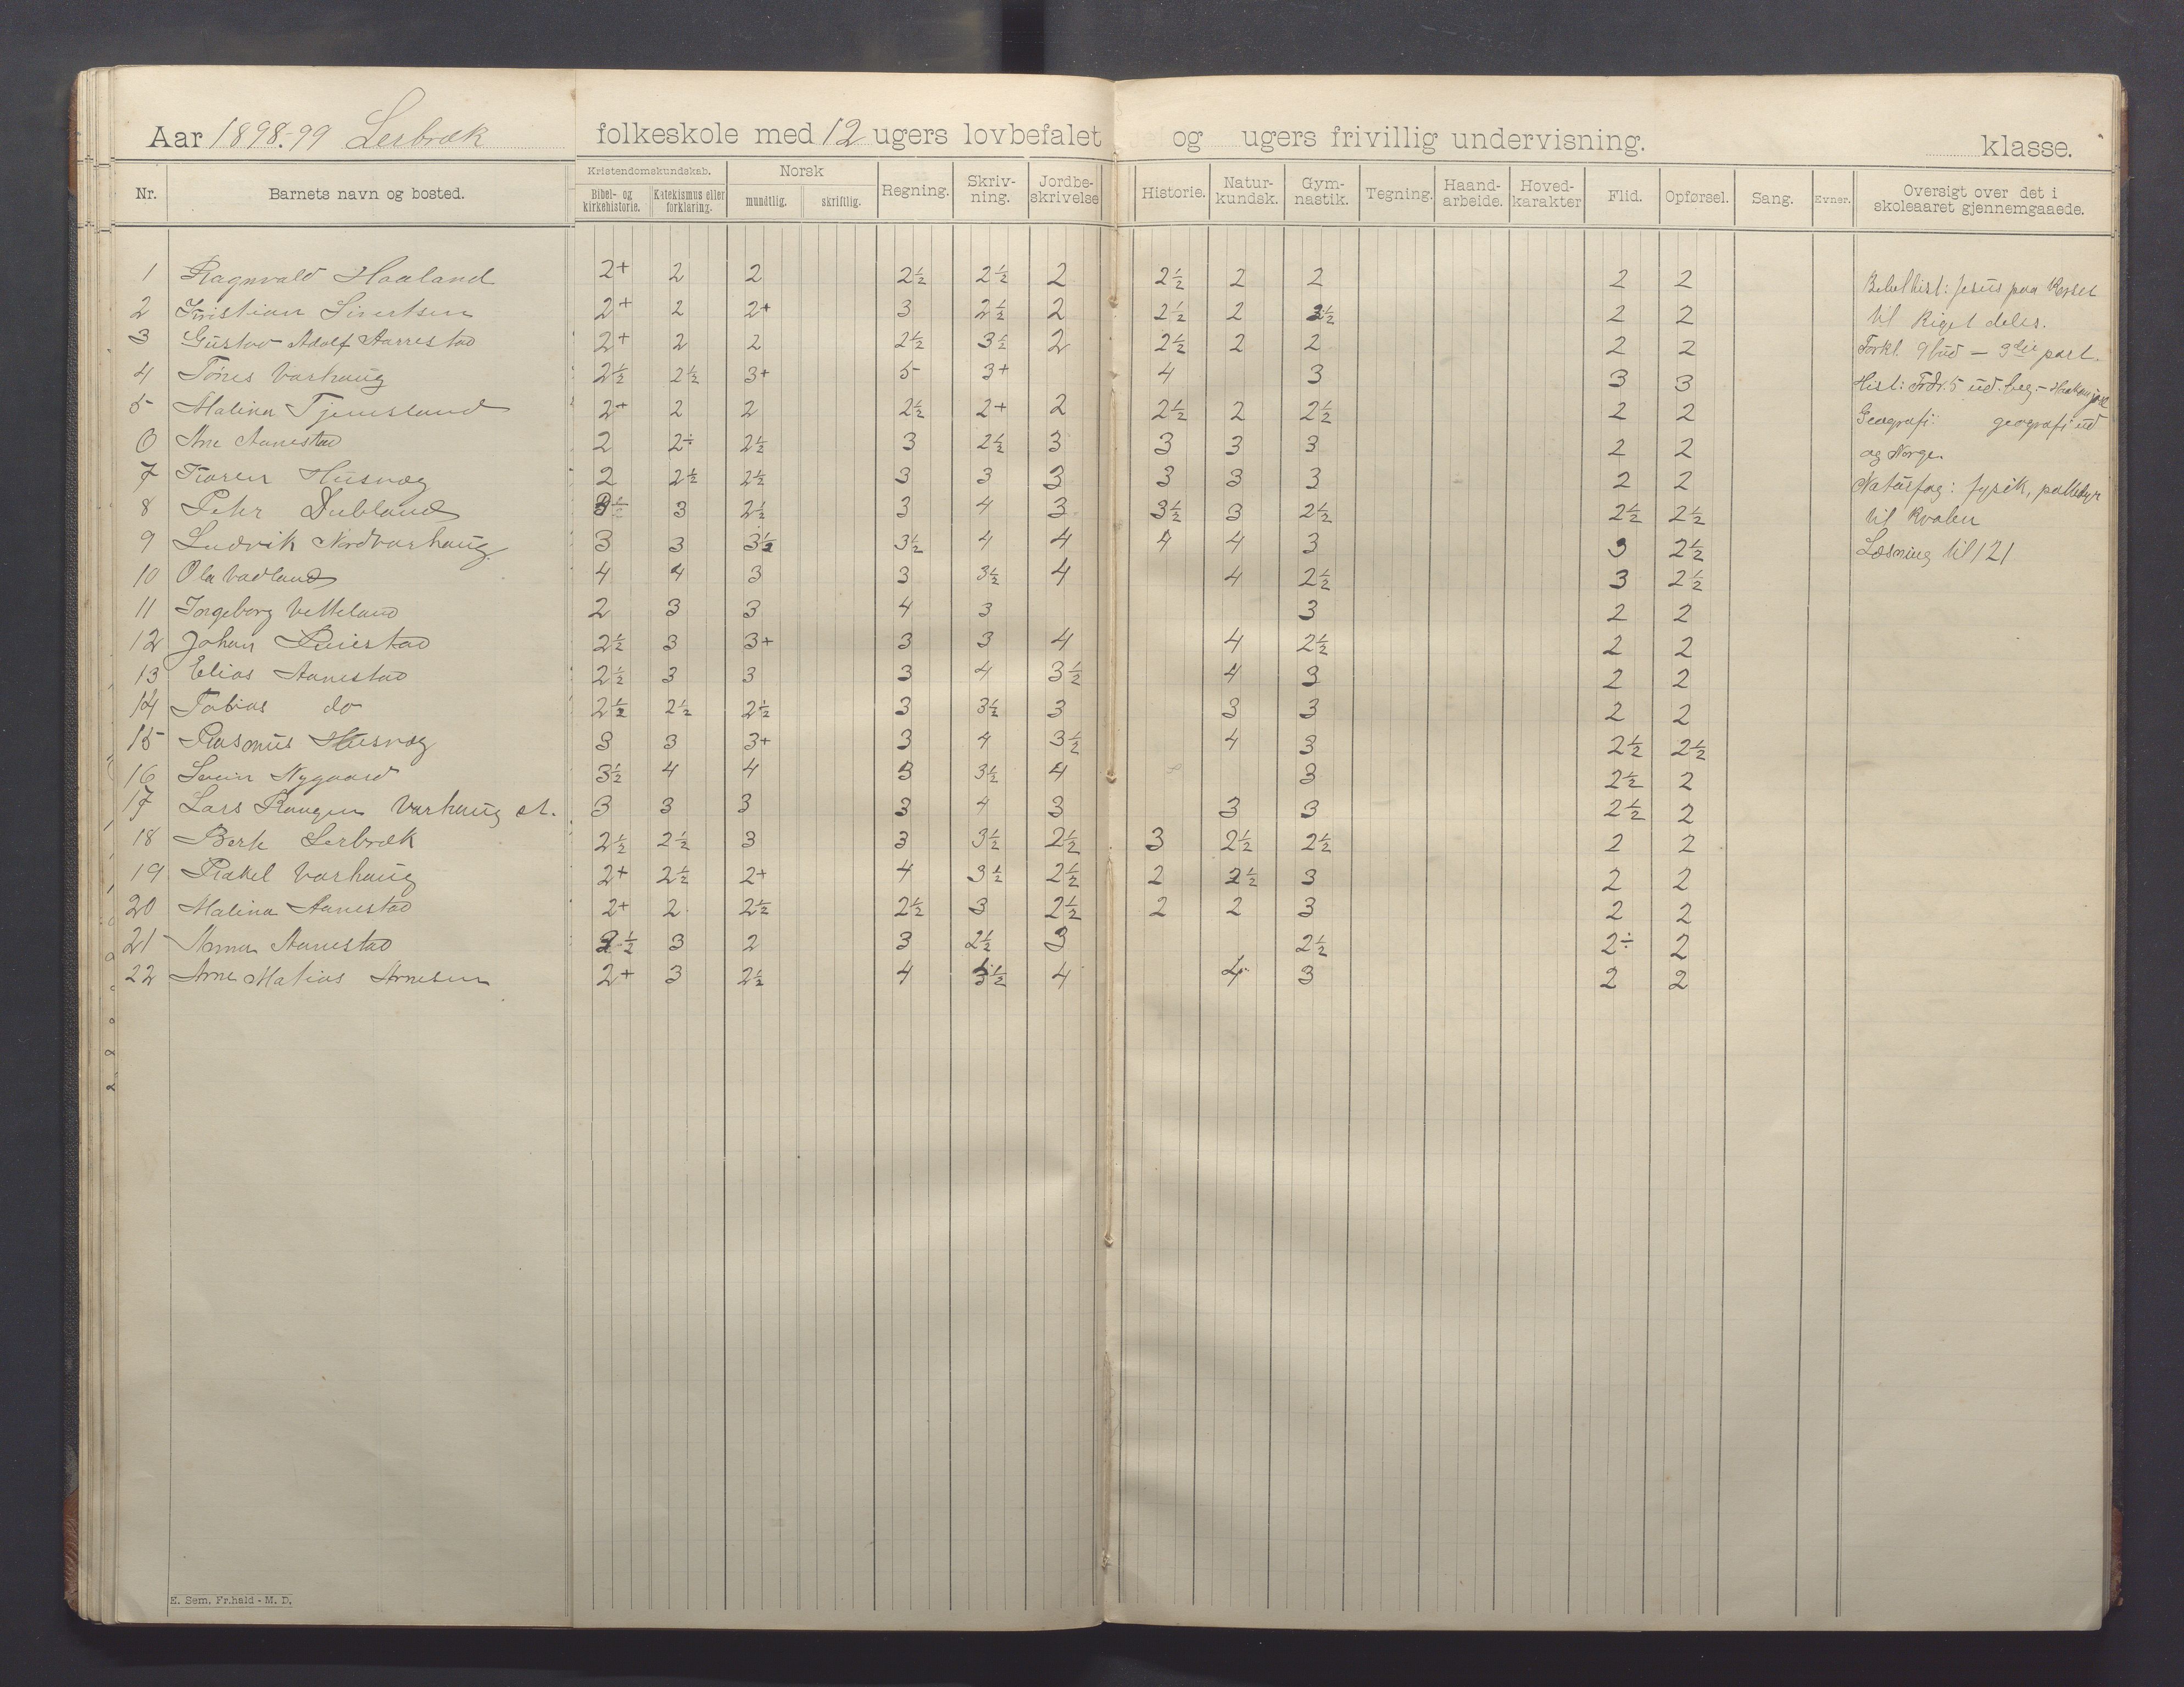 Aar 1898-99 Lerbræk folkeskole med 12 ugers lovbefalet og ugers frivillig undervisning. klasse.
Nr. Barnets navn og bosted. Kristendomskundskab. Bibel- og kirkehistorie. Katekismus eller forklaring. Norsk mundtlig. skriftlig. Regning. Skrivning. Jordbeskrivelse Historie. Naturkundsk. Gymnastik. Tegning. Haandarbeide. Hovedkarakter Flid. Opførsel. Sang. Evner. Oversigt over det i skoleaaret gjennemgaaede.
1 Ragnvald Haaland 2+ 2 2 2½ 2½ 2 2½ 2 2 2 2 Bibelhist: Jesus paa Korset
2 Kristian Sivertsen 2+ 2 2+ 3 2½ 2 2½ 2 2½ 2 2 til Riget deles.
3 Gustav Adolf Aarrestad 2+ 2 2 2½ 3½ 2 2½ 2 2 2 2 Forkl. 9 bud — 3die part.
4 Tønes Varhaug 2½ 2½ 3+ 5 3+ 4 3 3 3 Hist: 5 ud. beg – Haakon jarl
5 Malina Tjemsland 2+ 2 2 2½ 2+ 2 2½ 2 2½ 2 2 Geografi: geografi ud
6 Ane Aanestad 2 2÷ 2½ 3 2½ 3 3 3 3 2 2 og Norge.
7 Karen Husvæg 2 2½ 2½ 3 3 3 3 3 3 2 2 Naturfag: fysik, pattedyr
8 Peter Dubland 3½ 3 2½ 3 4 3 3½ 3 2½ 2½ 2½ til Hvalen
9 Ludvik Nordvarhaug 3 3 3½ 3½ 4 4 4 4 3 3 2½ Læsning til 121
10 Ola Vadland 4 4 3 3 3½ 4 4 2½ 3 2½
11 Ingeborg Vetteland 2 3 3 4 3 3 2 2
12 Johan 2½ 3 3+ 3 3 4 4 2½ 2 2
13 Elias Aanestad 2½ 3 3 3 4 3½ 4 3 2 2
14 Tobias do 2½ 2½ 2½ 3 3½ 3 3 3 2 2
15 Rasmus Husvæg 3 3 3+ 3 4 3½ 4 3 2½ 2½
16 Svein Nygaard 3½ 4 4 3 3½ 4 3 2½ 2
17 Lars Varhaug st. 3 3 3 3 4 3 3 3 2½ 2
18 Berte Lerbræk 2½ 2½ 3 3 3½ 2½ 3 2½ 2½ 2 2
19 Rakel Varhaug 2+ 2½ 2+ 4 3½ 2½ 2 2½ 3 2 2
20 Malina Aanestad 2+ 2 2½ 2½ 3 2½ 2 2 3 2 2
21 Anna Aanestad 2½ 3 2 3 2½ 3 2½ 2÷ 2
22 Arne Matias Arnesen 2+ 3 2½ 4 3½ 4 4 3 2 2
E. Sem, Fr.hald - M. D.